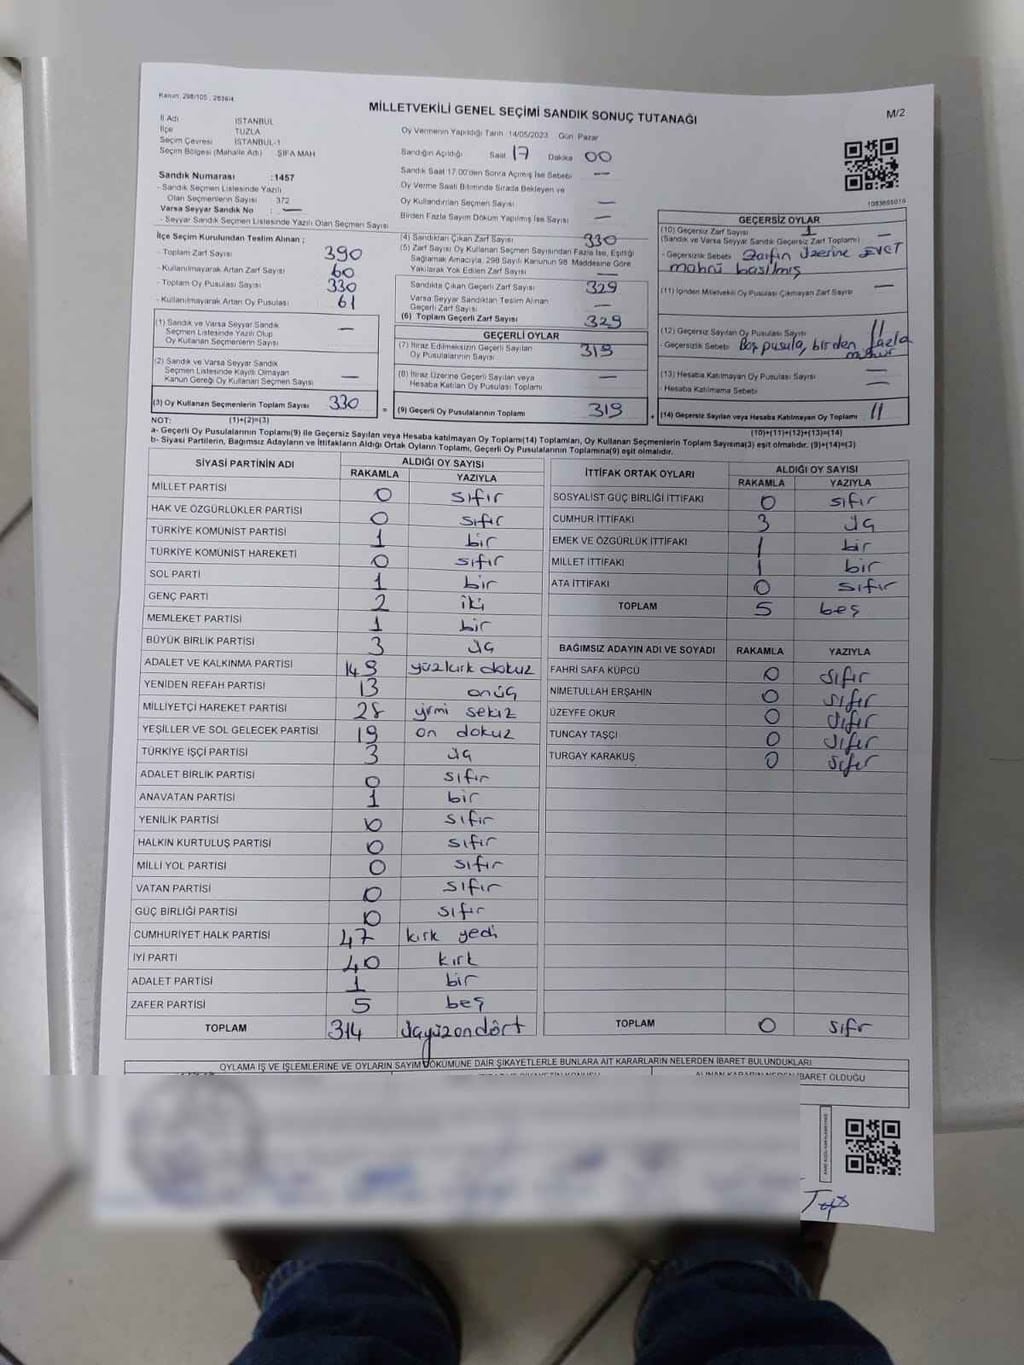 Kanun: 298/105 , 2839/4
MİLLETVEKİLİ GENEL SEÇİMİ SANDIK SONUÇ TUTANAĞI
M/2
İl Adı İSTANBUL
İlçe TUZLA
Seçim Çevresi İSTANBUL-1
Seçim Bölgesi (Mahalle Adı) ŞİFA MAH
Sandık Numarası :1457
- Sandık Seçmen Listesinde Yazılı
Olan Seçmenlerin Sayısı 372
Varsa Seyyar Sandık No : —
- Seyyar Sandık Seçmen Listesinde Yazılı Olan Seçmen Sayısı
Oy Vermenin Yapıldığı Tarih 14/05/2023 Gün Pazar
Sandığın Açıldığı Saat 17 Dakika 00
Sandık Saat 17.00'den Sonra Açılmış İse Sebebi —
Oy Verme Saati Bitiminde Sırada Bekleyen ve
Oy Kullandırılan Seçmen Sayısı —
Birden Fazla Sayım Döküm Yapılmış İse Sayısı —
İlçe Seçim Kurulundan Teslim Alınan ;
- Toplam Zarf Sayısı 390
- Kullanılmayarak Artan Zarf Sayısı 60
- Toplam Oy Pusulası Sayısı 330
- Kullanılmayarak Artan Oy Pusulası 61
(1) Sandık ve Varsa Seyyar Sandık
Seçmen Listesinde Yazılı Olup
Oy Kullanan Seçmenlerin Sayısı —
(2) Sandık ve Varsa Seyyar Sandık
Seçmen Listesinde Kayıtlı Olmayan
Kanun Gereği Oy Kullanan Seçmen Sayısı —
(3) Oy Kullanan Seçmenlerin Toplam Sayısı 330
(4) Sandıktan Çıkan Zarf Sayısı 330
(5) Zarf Sayısı Oy Kullanan Seçmen Sayısından Fazla İse, Eşitliği
Sağlamak Amacıyla, 298 Sayılı Kanunun 98 Maddesine Göre
Yakılarak Yok Edilen Zarf Sayısı —
Sandıkta Çıkan Geçerli Zarf Sayısı 329
Varsa Seyyar Sandıktan Teslim Alınan
Geçerli Zarf Sayısı —
(6) Toplam Geçerli Zarf Sayısı 329
GEÇERLİ OYLAR
(7) İtiraz Edilmeksizin Geçerli Sayılan
Oy Pusulalarının Sayısı 319
(8) İtiraz Üzerine Geçerli Sayılan veya
Hesaba Katılan Oy Pusulası Toplamı —
(9) Geçerli Oy Pusulalarının Toplamı 319
GEÇERSİZ OYLAR
(10) Geçersiz Zarf Sayısı 1
(Sandık ve Varsa Seyyar Sandık Geçersiz Zarf Toplamı) —
- Geçersizlik Sebebi Zarfın üzerine EVET
mührü basılmış
(11) İçinden Milletvekili Oy Pusulası Çıkmayan Zarf Sayısı —
(12) Geçersiz Sayılan Oy Pusulası Sayısı 11
- Geçersizlik Sebebi Boş pusula, birden fazla
mühür
(13) Hesaba Katılmayan Oy Pusulası Sayısı —
- Hesaba Katılmama Sebebi —
(14) Geçersiz Sayılan veya Hesaba Katılmayan Oy Toplamı 11
NOT: (1)+(2)=(3)
(10)+(11)+(12)+(13)=(14)
a- Geçerli Oy Pusulalarının Toplamı(9) ile Geçersiz Sayılan veya Hesaba katılmayan Oy Toplamı(14) Toplamları, Oy Kullanan Seçmenlerin Toplam Sayısına(3) eşit olmalıdır. (9)+(14)=(3)
b- Siyasi Partilerin, Bağımsız Adayların ve İttifakların Aldığı Ortak Oyların Toplamı, Geçerli Oy Pusulalarının Toplamına(9) eşit olmalıdır.
SİYASİ PARTİNİN ADI ALDIĞI OY SAYISI
RAKAMLA YAZIYLA
MİLLET PARTİSİ 0 sıfır
HAK VE ÖZGÜRLÜKLER PARTİSİ 0 sıfır
TÜRKİYE KOMÜNİST PARTİSİ 1 bir
TÜRKİYE KOMÜNİST HAREKETİ 0 sıfır
SOL PARTİ 1 bir
GENÇ PARTİ 2 iki
MEMLEKET PARTİSİ 1 bir
BÜYÜK BİRLİK PARTİSİ 3 üç
ADALET VE KALKINMA PARTİSİ 149 yüzkırk dokuz
YENİDEN REFAH PARTİSİ 13 onüç
MİLLİYETÇİ HAREKET PARTİSİ 28 yirmi sekiz
YEŞİLLER VE SOL GELECEK PARTİSİ 19 on dokuz
TÜRKİYE İŞÇİ PARTİSİ 3 üç
ADALET BİRLİK PARTİSİ 0 sıfır
ANAVATAN PARTİSİ 1 bir
YENİLİK PARTİSİ 0 sıfır
HALKIN KURTULUŞ PARTİSİ 0 sıfır
MİLLİ YOL PARTİSİ 0 sıfır
VATAN PARTİSİ 0 sıfır
GÜÇ BİRLİĞİ PARTİSİ 0 sıfır
CUMHURİYET HALK PARTİSİ 47 kırk yedi
İYİ PARTİ 40 kırk
ADALET PARTİSİ 1 bir
ZAFER PARTİSİ 5 beş
TOPLAM 314 üçyüzondört
İTTİFAK ORTAK OYLARI ALDIĞI OY SAYISI
RAKAMLA YAZIYLA
SOSYALİST GÜÇ BİRLİĞİ İTTİFAKI 0 sıfır
CUMHUR İTTİFAKI 3 üç
EMEK VE ÖZGÜRLÜK İTTİFAKI 1 bir
MİLLET İTTİFAKI 1 bir
ATA İTTİFAKI 0 sıfır
TOPLAM 5 beş
BAĞIMSIZ ADAYIN ADI VE SOYADI RAKAMLA YAZIYLA
FAHRİ SAFA KÜPCÜ 0 sıfır
NİMETULLAH ERŞAHİN 0 sıfır
ÜZEYFE OKUR 0 sıfır
TUNCAY TAŞÇI 0 sıfır
TURGAY KARAKUŞ 0 sıfır
TOPLAM 0 sıfr
OYLAMA İŞ VE İŞLEMLERİNE VE OYLARIN SAYIM DÖKÜMÜNE DAİR ŞİKAYETLERLE BUNLARA AİT KARARLARIN NELERDEN İBARET BULUNDUKLARI
ALINAN KARARIN NEDEN İBARET OLDUĞU